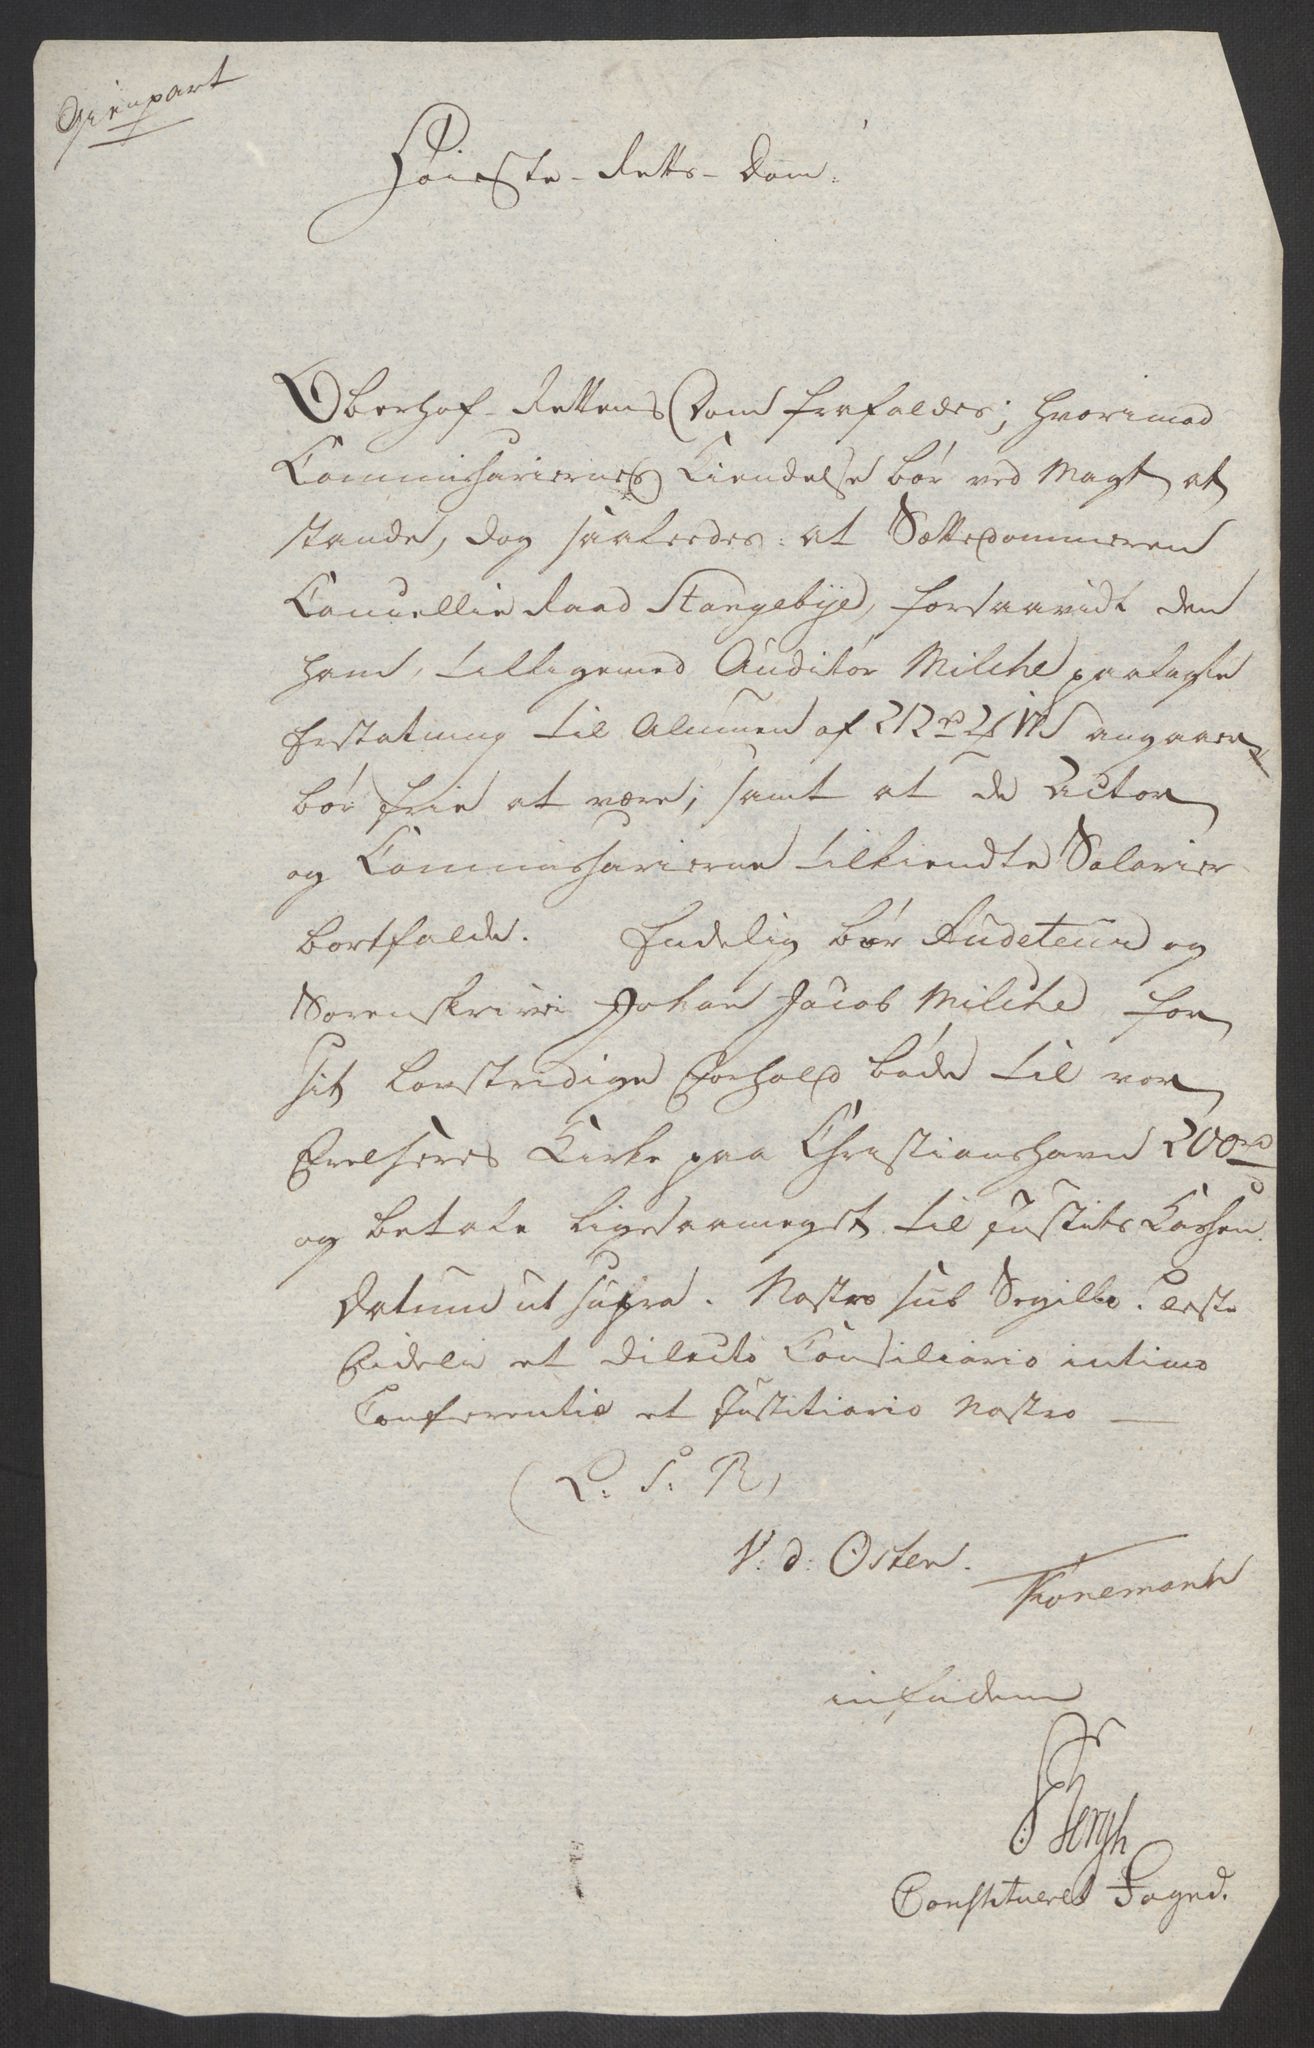 Gienpart
Høieste-Retts-Dom.
Oberhof-Rettens Dom frafaldes; hvorimod
Commissariernes Kiendelse bør ved Magt at
stande, dog saaledes: at Sættedommeren
Cancellie Raad Stangebye, forsaavidt den
ham, tilligemed Auditør Milche paalagte
Erstatning til Almuen af 212 rd angaaer
bør frie at være; samt at de Actor
og Commissarierne tilkiendte Salarier
bortfalde. Endelig bør Audeteur og
Sorenskriver Johan Jacob Milche for
sit lovstridige Forhold bøde til vor
Frelseres Kirke paa Christianshavn 200 rd
og betale ligesaameget til Justits Cassen.
Datum ut supra. Nostro sub Sigillo. Teste
Fideli et dilecto Consiliario intimo
Conferentiæ et Justitiario Nostro —
(L. S. R)
V. d. Osten.
Kønemann
in fidem
Bergh
Constitueret Foged.